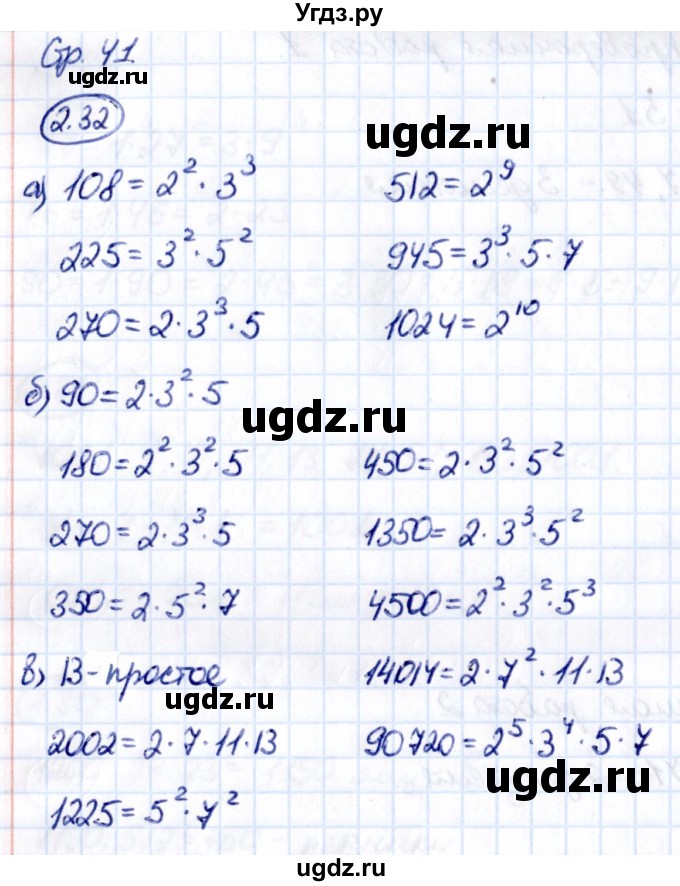 Угдз.ру
Стр. 41.
ugdz.ru
2.32
ugdz.ru
а) 108 = 2² · 3³ 512 = 2⁹
225 = 3² · 5² 945 = 3³ · 5 · 7
270 = 2 · 3³ · 5 1024 = 2¹⁰
б) 90 = 2 · 3² · 5
ugdz.ru
180 = 2² · 3² · 5 450 = 2 · 3² · 5²
270 = 2 · 3³ · 5 1350 = 2 · 3³ · 5²
350 = 2 · 5² · 7 4500 = 2² · 3² · 5³
в) 13 - простое 14014 = 2 · 7² · 11 · 13
ugdz.ru
2002 = 2 · 7 · 11 · 13 90720 = 2⁵ · 3⁴ · 5 · 7
ugdz.ru
1225 = 5² · 7²
ugdz.ru